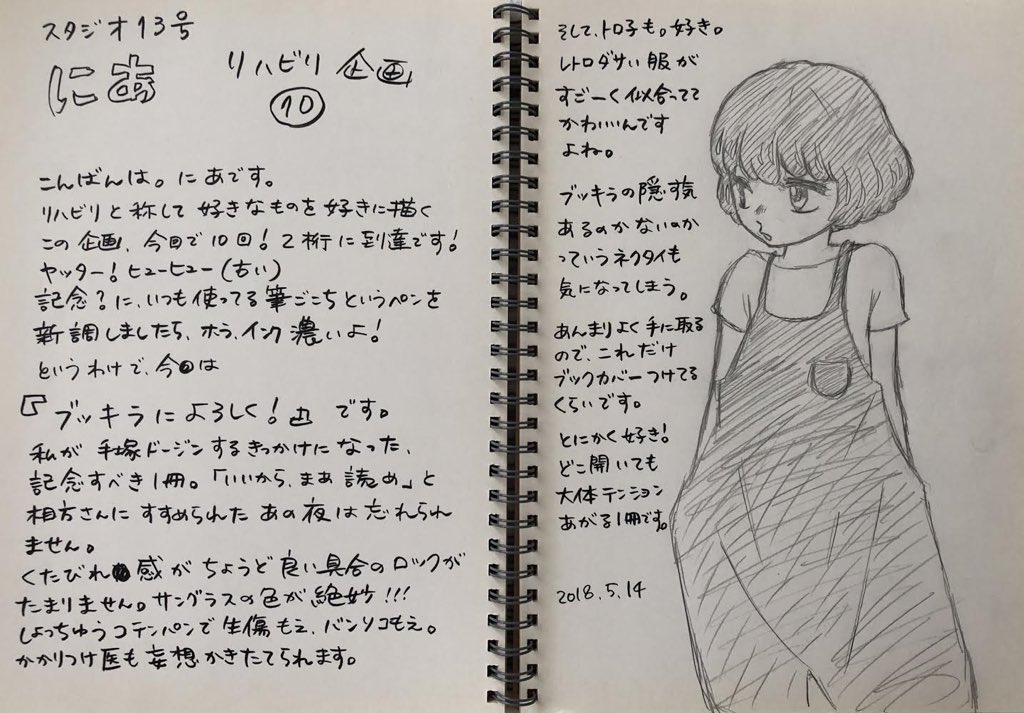 スタジオ13号
にあ
リハビリ企画
⑩
こんばんは。にあです。
リハビリと称して好きなものを好きに描く
この企画、今回で10回！2桁に到達です！
ヤッター！ヒューヒュー（古い）
記念？に、いつも使ってる筆ごこちというペンを
新調しましたら、ホラ、インク濃いよ！
というわけで、今回は
『ブッキラによろしく！』です。
私が手塚ドージンするきっかけになった、
記念すべき1冊。「いいから、まあ読め」と
相方さんにすすめられたあの夜は忘れられ
ません。
くたびれ感がちょうど良い具合のロックが
たまりません。サングラスの色が絶妙!!!
しょっちゅうコテンパンで生傷もえ、バンソコもえ。
かかりつけ医も妄想かきたてられます。
そして、トロ子も。好き。
レトロダサい服が
すごーく似合ってて
かわいいんです
よね。
ブッキラの隠す気
あるのかないのか
っていうネクタイも
気になってしまう。
あんまりよく手に取る
ので、これだけ
ブックカバーつけてる
くらいです。
とにかく好き！
どこ開いても
大体テンション
あがる1冊です。
2018.5.14